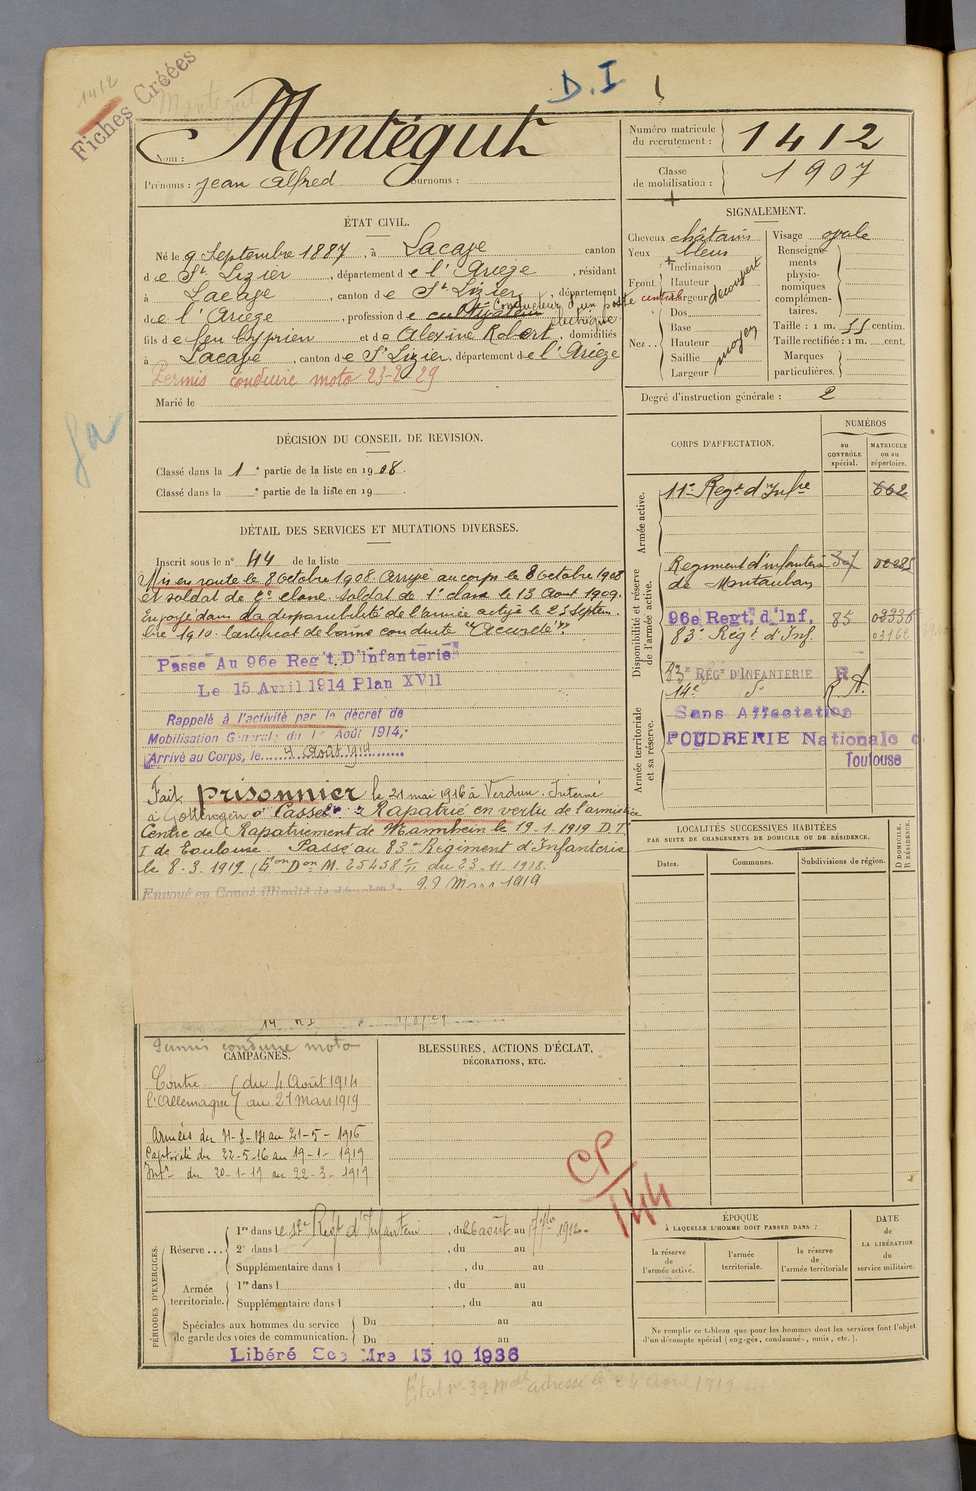 1412
Fiches Créées
Montégut
D.I
Nom : Montégut
Prénoms : Jean Alfred Surnoms :
Numéro matricule du recrutement : 1412
Classe de mobilisation : 1907
ÉTAT CIVIL.
Né le 9 Septembre 1887, à Lacave canton
de St Lizier, département de l'Ariège, résidant
à Lacave, canton de St Lizier, département
de l'Ariège, profession de cultivateur Conducteur d'un poste central électrique
fils de feu Cyprien et de Alexine Robert, domiciliés
à Lacave, canton de St Lizier, département de l'Ariège
Permis conduire moto 23-2-29
Marié le
SIGNALEMENT.
Cheveux châtains
Yeux bleus
Front Inclinaison
Hauteur
Largeur découvert
Nez Dos
Base
Hauteur moyen
Saillie
Largeur
Visage ovale
Renseignements physionomiques complémentaires.
Taille : 1 m. 55 centim.
Taille rectifiée : 1 m. cent.
Marques particulières.
Degré d'instruction générale : 2
DÉCISION DU CONSEIL DE REVISION.
Classé dans la 1e partie de la liste en 1908.
Classé dans la e partie de la liste en 19
DÉTAIL DES SERVICES ET MUTATIONS DIVERSES.
Inscrit sous le n° 44 de la liste
Mis en route le 8 Octobre 1908. Arrivé au corps le 8 Octobre 1908
et soldat de 2e classe. Soldat de 1e classe le 13 Août 1909.
Envoyé dans la disponibilité de l'armée active le 25 Septem
bre 1910. Certificat de bonne conduite "Accordé".
Passé Au 96e Reg't. D'Infanterie
Le 15 Avril 1914 Plan XVII
Rappelé à l'activité par le décret de
Mobilisation Générale du 1er Août 1914,
Arrivé au Corps, le 4 Août 1914
Fait prisonnier le 21 mai 1916 à Verdun. Interné
à Gottingen & Cassel. Rapatrié en vertu de l'armistice
Centre de Rapatriement de Mannheim le 19-1-1919 D.I
I de Toulouse. Passé au 83e Régiment d'Infanterie
le 8-3-1919. (Eon Don M. 25458 1/11 du 23.11.1918.
Envoyé en Congé illimité de démobon le 22 Mars 1919
14e R I
CORPS D'AFFECTATION.
NUMÉROS
au CONTRÔLE spécial.
MATRICULE ou au répertoire.
Armée active.
11e Regt d'Infie 662
Disponibilité et réserve de l'armée active.
Régiment d'infanterie
de Montauban
96e Regt, d'Inf, 85 09336
83e Régt d'Inf. 03162
83e RÉGt D'INFANTERIE R
14e do R. A.
Armée territoriale et sa réserve.
Sans Affectation
POUDRERIE Nationale d
Toulouse
LOCALITÉS SUCCESSIVES HABITÉES
PAR SUITE DE CHANGEMENTS DE DOMICILE OU DE RÉSIDENCE.
D DOMICILE. R RÉSIDENCE.
Dates. Communes. Subdivisions de région.
Permis conduire moto
CAMPAGNES.
Contre l'Allemagne
du 4 Août 1914
au 21 Mars 1919
Armées du 4-8-14 au 21-5-1916
Captivité du 22-5-16 au 19-1-1919
Intr du 20-1-19 au 22-3-1919
BLESSURES, ACTIONS D'ÉCLAT,
DÉCORATIONS, ETC.
CP
144
PÉRIODES D'EXERCICES.
Réserve
1re dans le Regt d'Infanterie, du 26 août au 1912
2e dans l , du au
Supplémentaire dans l , du au
Armée territoriale.
1re dans l , du au
Supplémentaire dans l , du au
Spéciales aux hommes du service de garde des voies de communication.
Du au
Du au
Libéré Sce Mre 15 10 1936
ÉPOQUE
À LAQUELLE L'HOMME DOIT PASSER DANS :
la réserve de l'armée active.
l'armée territoriale.
la réserve de l'armée territoriale
DATE de LA LIBÉRATION du service militaire.
Ne remplir ce tableau que pour les hommes dont les services font l'objet
d'un décompte spécial (engagés, condamnés, omis, etc.).
adressé le 24 avril 1919